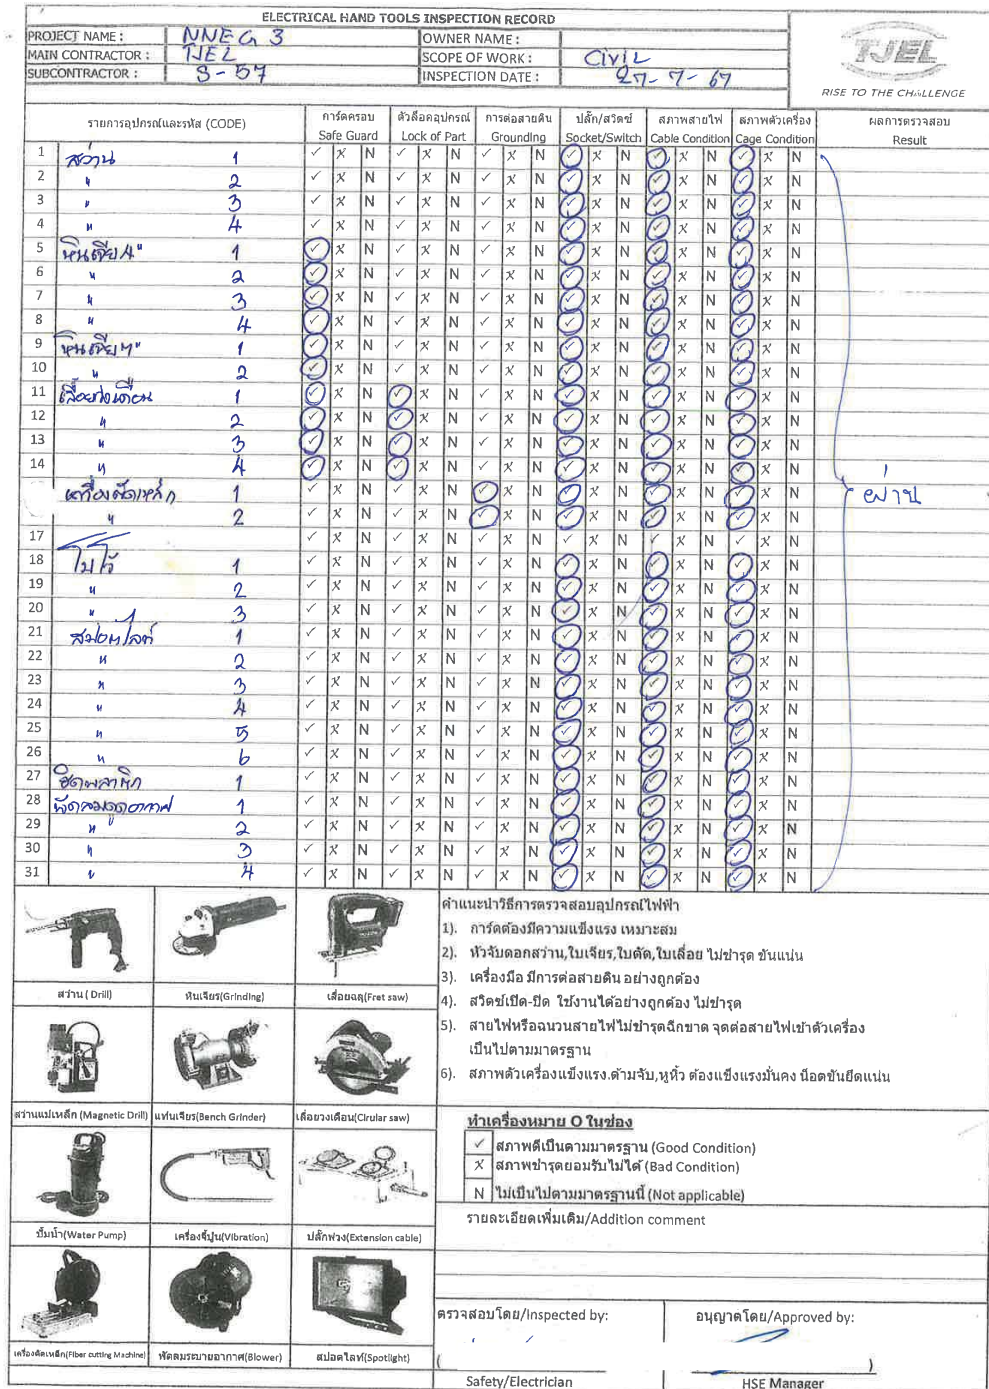 ELECTRICAL HAND TOOLS INSPECTION RECORD
PROJECT NAME : NNEG 3 OWNER NAME :
MAIN CONTRACTOR : TJEL SCOPE OF WORK : Civil
SUBCONTRACTOR : S-57 INSPECTION DATE : 27-7-67
TJEL
RISE TO THE CHALLENGE
รายการอุปกรณ์และรหัส (CODE) การ์ดครอบ ตัวล็อคอุปกรณ์ การต่อสายดิน ปลั๊ก/สวิตซ์ สภาพสายไฟ สภาพตัวเครื่อง ผลการตรวจสอบ
Safe Guard Lock of Part Grounding Socket/Switch Cable Condition Cage Condition Result
1 สว่าน 1 ✓ X N ✓ X N ✓ X N ✓ X N ✓ X N ✓ X N
2 " 2 ✓ X N ✓ X N ✓ X N ✓ X N ✓ X N ✓ X N
3 " 3 ✓ X N ✓ X N ✓ X N ✓ X N ✓ X N ✓ X N
4 " 4 ✓ X N ✓ X N ✓ X N ✓ X N ✓ X N ✓ X N
5 หินเจีย 4" 1 ✓ X N ✓ X N ✓ X N ✓ X N ✓ X N ✓ X N
6 " 2 ✓ X N ✓ X N ✓ X N ✓ X N ✓ X N ✓ X N
7 " 3 ✓ X N ✓ X N ✓ X N ✓ X N ✓ X N ✓ X N
8 " 4 ✓ X N ✓ X N ✓ X N ✓ X N ✓ X N ✓ X N
9 หินเจีย 7" 1 ✓ X N ✓ X N ✓ X N ✓ X N ✓ X N ✓ X N
10 " 2 ✓ X N ✓ X N ✓ X N ✓ X N ✓ X N ✓ X N
11 เลื่อยวงเดือน 1 ✓ X N ✓ X N ✓ X N ✓ X N ✓ X N ✓ X N
12 " 2 ✓ X N ✓ X N ✓ X N ✓ X N ✓ X N ✓ X N
13 " 3 ✓ X N ✓ X N ✓ X N ✓ X N ✓ X N ✓ X N
14 " 4 ✓ X N ✓ X N ✓ X N ✓ X N ✓ X N ✓ X N
เครื่องตัดเหล็ก 1 ✓ X N ✓ X N ✓ X N ✓ X N ✓ X N ✓ X N ผ่าน
" 2 ✓ X N ✓ X N ✓ X N ✓ X N ✓ X N ✓ X N
17 ✓ X N ✓ X N ✓ X N ✓ X N ✓ X N ✓ X N
18 1 ✓ X N ✓ X N ✓ X N ✓ X N ✓ X N ✓ X N
19 " 2 ✓ X N ✓ X N ✓ X N ✓ X N ✓ X N ✓ X N
20 " 3 ✓ X N ✓ X N ✓ X N ✓ X N ✓ X N ✓ X N
21 สปอตไลท์ 1 ✓ X N ✓ X N ✓ X N ✓ X N ✓ X N ✓ X N
22 " 2 ✓ X N ✓ X N ✓ X N ✓ X N ✓ X N ✓ X N
23 " 3 ✓ X N ✓ X N ✓ X N ✓ X N ✓ X N ✓ X N
24 " 4 ✓ X N ✓ X N ✓ X N ✓ X N ✓ X N ✓ X N
25 " 5 ✓ X N ✓ X N ✓ X N ✓ X N ✓ X N ✓ X N
26 " 6 ✓ X N ✓ X N ✓ X N ✓ X N ✓ X N ✓ X N
27 1 ✓ X N ✓ X N ✓ X N ✓ X N ✓ X N ✓ X N
28 พัดลมดูดอากาศ 1 ✓ X N ✓ X N ✓ X N ✓ X N ✓ X N ✓ X N
29 " 2 ✓ X N ✓ X N ✓ X N ✓ X N ✓ X N ✓ X N
30 " 3 ✓ X N ✓ X N ✓ X N ✓ X N ✓ X N ✓ X N
31 " 4 ✓ X N ✓ X N ✓ X N ✓ X N ✓ X N ✓ X N
สว่าน ( Drill) หินเจียร(Grinding) เลื่อยฉลุ(Fret saw)
สว่านแม่เหล็ก (Magnetic Drill) แท่นเจียร(Bench Grinder) เลื่อยวงเดือน(Cirular saw)
ปั๊มน้ำ(Water Pump) เครื่องจี้ปูน(Vibration) ปลั๊กพ่วง(Extension cable)
เครื่องตัดเหล็ก(Fiber cutting Machine) พัดลมระบายอากาศ(Blower) สปอตไลท์(Spotlight)
คำแนะนำวิธีการตรวจสอบอุปกรณ์ไฟฟ้า
1). การ์ดต้องมีความแข็งแรง เหมาะสม
2). หัวจับดอกสว่าน,ใบเจียร,ใบตัด,ใบเลื่อย ไม่ชำรุด ขันแน่น
3). เครื่องมือ มีการต่อสายดิน อย่างถูกต้อง
4). สวิตซ์เปิด-ปิด ใช้งานได้อย่างถูกต้อง ไม่ชำรุด
5). สายไฟหรือฉนวนสายไฟไม่ชำรุดฉีกขาด จุดต่อสายไฟเข้าตัวเครื่อง
เป็นไปตามมาตรฐาน
6). สภาพตัวเครื่องแข็งแรง.ด้ามจับ,หูหิ้ว ต้องแข็งแรงมั่นคง น็อตขันยึดแน่น
ทำเครื่องหมาย O ในช่อง
✓ สภาพดีเป็นตามมาตรฐาน (Good Condition)
X สภาพชำรุดยอมรับไม่ได้ (Bad Condition)
N ไม่เป็นไปตามมาตรฐานนี้ (Not applicable)
รายละเอียดเพิ่มเติม/Addition comment
ตรวจสอบโดย/Inspected by: อนุญาตโดย/Approved by:
( )
Safety/Electrician HSE Manager